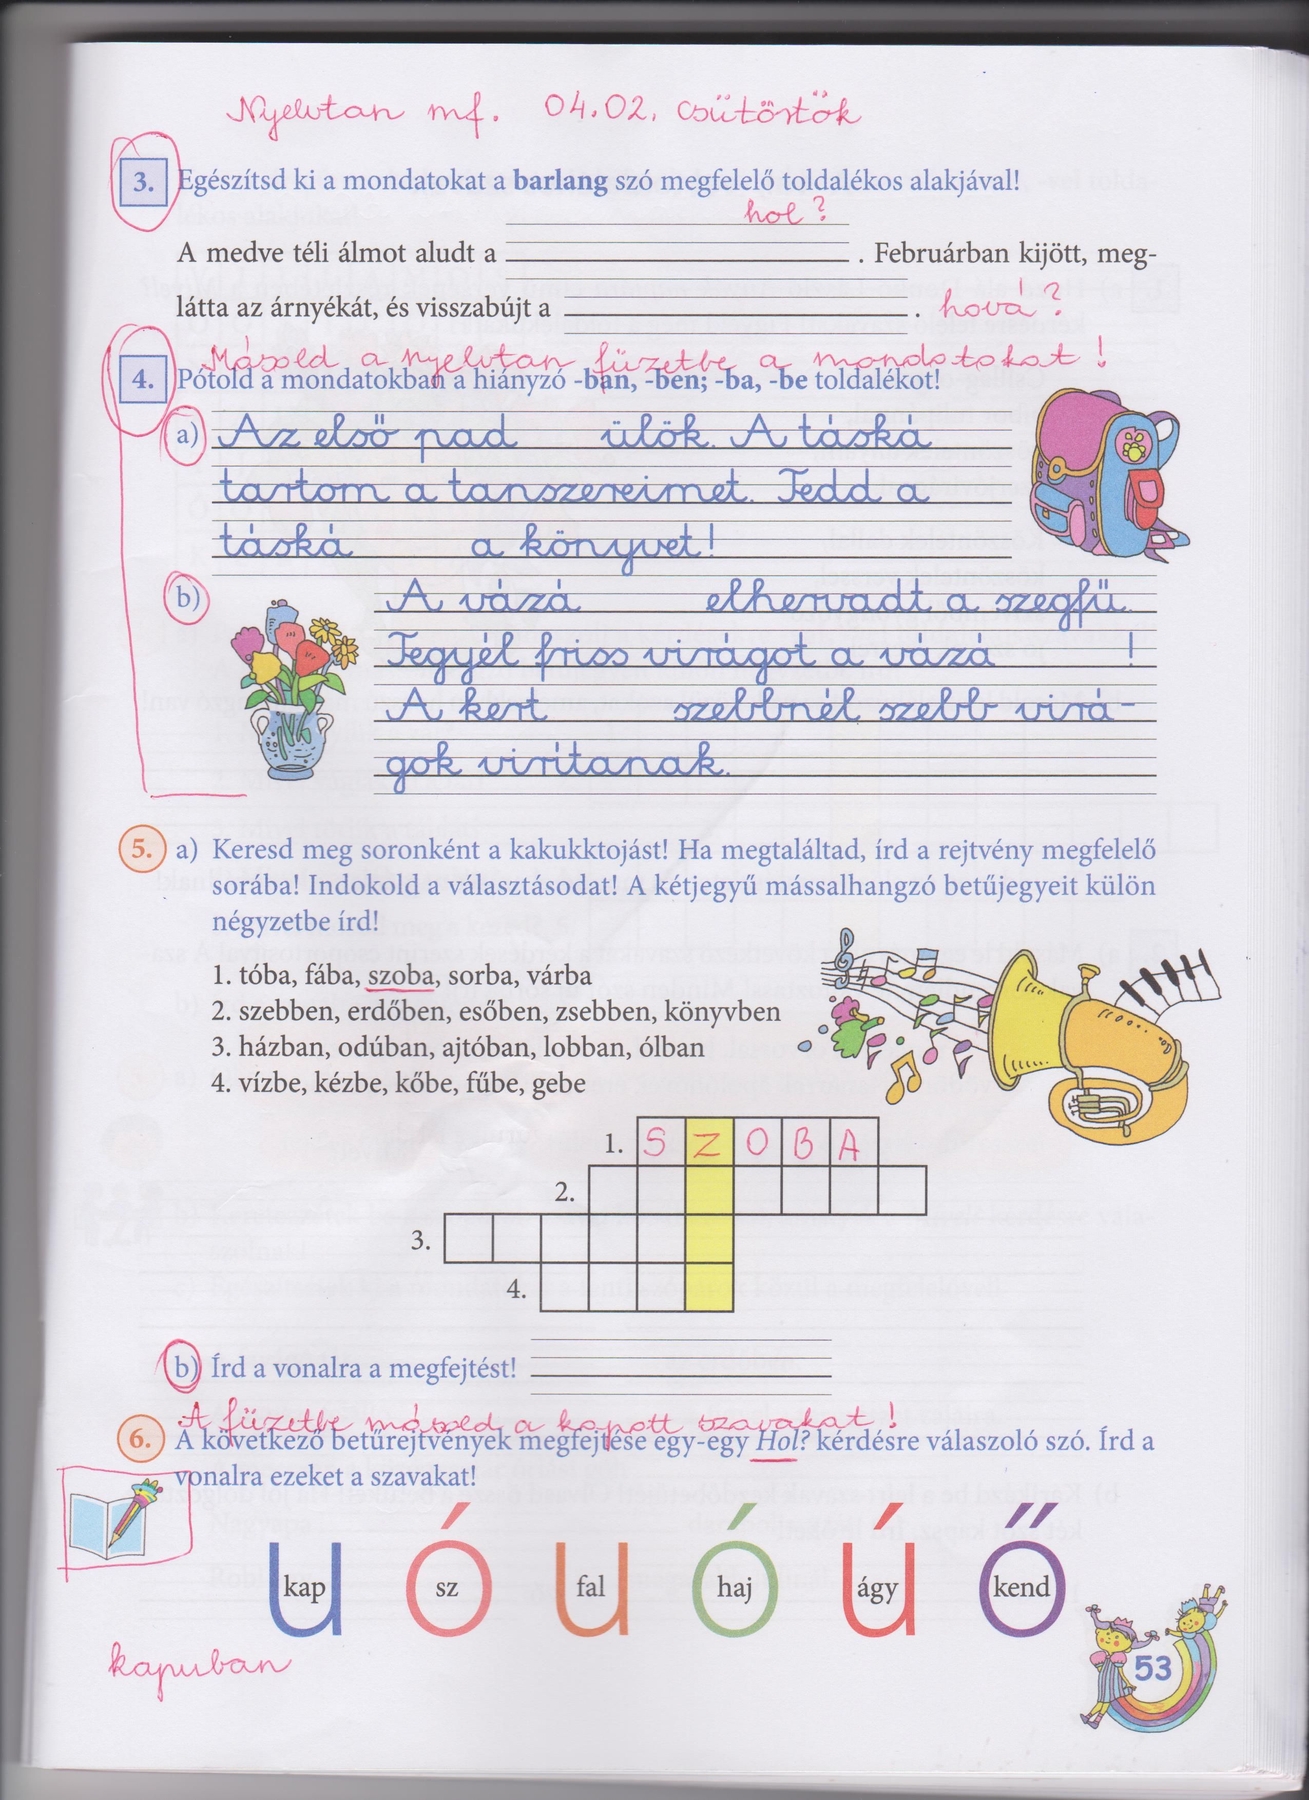 Nyelvtan mf. 04.02. csütörtök
3. Egészítsd ki a mondatokat a barlang szó megfelelő toldalékos alakjával!
hol?
A medve téli álmot aludt a . Februárban kijött, meg-
látta az árnyékát, és visszabújt a . hová?
Másold a nyelvtan füzetbe a mondatokat!
4. Pótold a mondatokban a hiányzó -ban, -ben; -ba, -be toldalékot!
a) Az első pad ülök. A táská
tartom a tanszereimet. Tedd a
táská a könyvet!
b) A vázá elhervadt a szegfű.
Tegyél friss virágot a vázá !
A kert szebbnél szebb virá-
gok virítanak.
5. a) Keresd meg soronként a kakukktojást! Ha megtaláltad, írd a rejtvény megfelelő
sorába! Indokold a választásodat! A kétjegyű mássalhangzó betűjegyeit külön
négyzetbe írd!
1. tóba, fába, szoba, sorba, várba
2. szebben, erdőben, esőben, zsebben, könyvben
3. házban, odúban, ajtóban, lobban, ólban
4. vízbe, kézbe, kőbe, fűbe, gebe
1. S Z O B A
2.
3.
4.
b) Írd a vonalra a megfejtést!
A füzetbe másold a kapott szavakat!
6. A következő betűrejtvények megfejtése egy-egy Hol? kérdésre válaszoló szó. Írd a
vonalra ezeket a szavakat!
u kap ó sz u fal ó haj ú ágy ő kend
kapuban
53